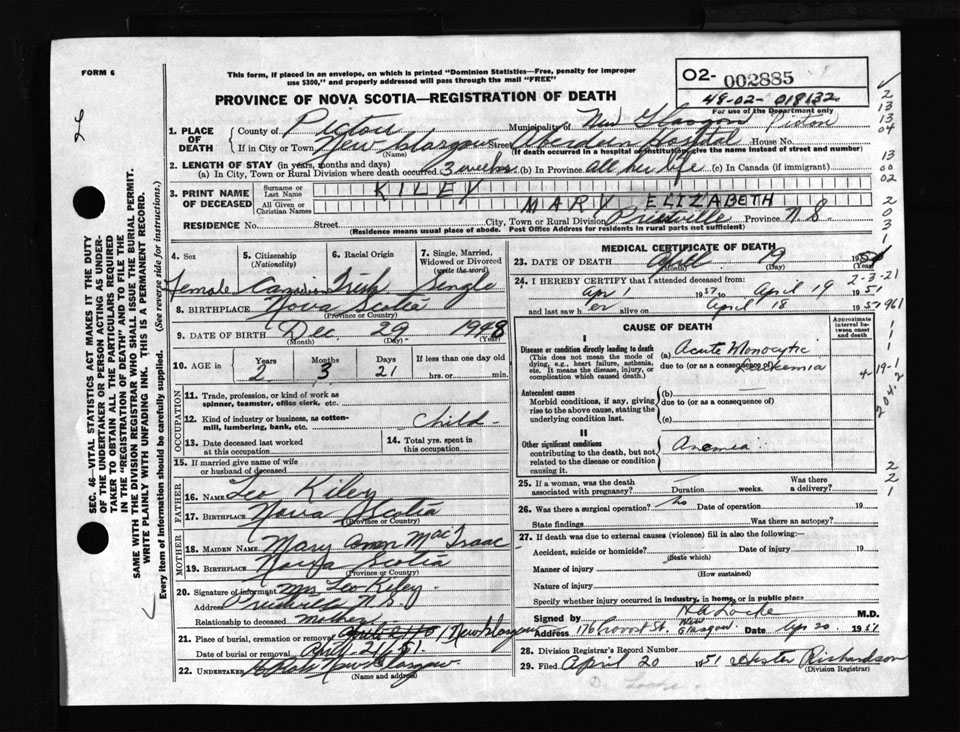 FORM 6
This form, if placed in an envelope, on which is printed "Dominion Statistics—Free, penalty for improper
use $300," and properly addressed will pass through the mail "FREE"
PROVINCE OF NOVA SCOTIA—REGISTRATION OF DEATH
O2- 002885
48-02-018132
For use of the Department only
1. PLACE OF DEATH
County of Pictou Municipality of New Glasgow Pictou
If in City or Town New Glasgow Street Aberdeen Hospital House No.
(Name) (If death occurred in a hospital or institution, give the name instead of street and number)
2. LENGTH OF STAY (in years, months and days)
(a) In City, Town or Rural Division where death occurred 3 weeks (b) In Province All her life (c) In Canada (if immigrant)
3. PRINT NAME OF DECEASED
Surname or Last Name KILEY
All Given or Christian Names MARY ELIZABETH
RESIDENCE No. Street City, Town or Rural Division Province N.S
(Residence means usual place of abode. Post Office Address for residents in rural parts not sufficient)
4. Sex
Female
5. Citizenship (Nationality)
Canadian
6. Racial Origin
Irish
7. Single, Married, Widowed or Divorced (write the word)
Single
8. BIRTHPLACE Nova Scotia
(Province or Country)
9. DATE OF BIRTH Dec 29 1948
(Month) (Day) (Year)
10. AGE in
Years Months Days If less than one day old
2 3 21 hrs. or min.
OCCUPATION
11. Trade, profession, or kind of work as
spinner, teamster, office clerk, etc.
12. Kind of industry or business, as cotton-
mill, lumbering, bank, etc. Child
13. Date deceased last worked
at this occupation
14. Total yrs. spent in
this occupation
15. If married give name of wife
or husband of deceased
FATHER
16. NAME Leo Kiley
17. BIRTHPLACE Nova Scotia
(Province or Country)
MOTHER
18. MAIDEN NAME Mary MacIsaac
19. BIRTHPLACE Nova Scotia
(Province or Country)
20. Signature of informant Mrs Leo Kiley
Address N.S.
Relationship to deceased mother
21. Place of burial, cremation or removal New Glasgow
Date of burial or removal April 21/51.
22. UNDERTAKER New Glasgow.
(Name and address)
MEDICAL CERTIFICATE OF DEATH
23. DATE OF DEATH April 19 1951
(Month) (Day) (Year)
24. I HEREBY CERTIFY that I attended deceased from: 2-3-21
Apr 1 1951 to April 19 1951
and last saw her alive on April 18 1951
CAUSE OF DEATH
Approximate interval between onset and death
I
Disease or condition directly leading to death
(This does not mean the mode of
dying, e.g., heart failure, asthenia,
etc. It means the disease, injury, or
complication which caused death.)
(a) Acute Monocytic
due to (or as a consequence of) Leukemia
Antecedent causes
Morbid conditions, if any, giving
rise to the above cause, stating the
underlying condition last.
(b)
due to (or as a consequence of)
(c)
II
Other significant conditions
contributing to the death, but not
related to the disease or condition
causing it.
Anemia
25. If a woman, was the death
associated with pregnancy? Duration weeks. Was there
a delivery?
26. Was there a surgical operation? No Date of operation 19
State findings Was there an autopsy?
27. If death was due to external causes (violence) fill in also the following:—
Accident, suicide or homicide? Date of injury 19
(State which)
Manner of injury
(How sustained)
Nature of injury
Specify whether injury occurred in industry, in home, or in public place
Signed by H A Locke M.D.
Address 176 St. New Glasgow Date Apr 20 1951
28. Division Registrar's Record Number
29. Filed April 20 1951 Hester Richardson
(Division Registrar)
SEC. 46—VITAL STATISTICS ACT MAKES IT THE DUTY
OF THE UNDERTAKER OR PERSON ACTING AS UNDER-
TAKER TO OBTAIN ALL THE PARTICULARS REQUIRED
IN THE "REGISTRATION OF DEATH" AND TO FILE THE
SAME WITH THE DIVISION REGISTRAR WHO SHALL ISSUE THE BURIAL PERMIT.
WRITE PLAINLY WITH UNFADING INK. THIS IS A PERMANENT RECORD.
Every item of information should be carefully supplied. (See reverse side for instructions.)